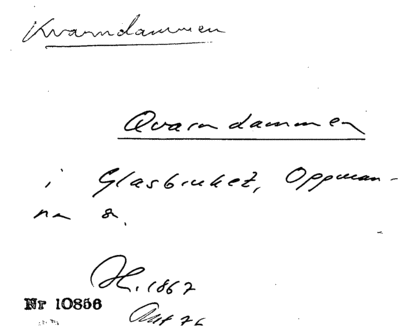 Kvarndammen
Qvarndammen
i Glasbruket, Oppman-
na s.
H. 1867
Nr 10856